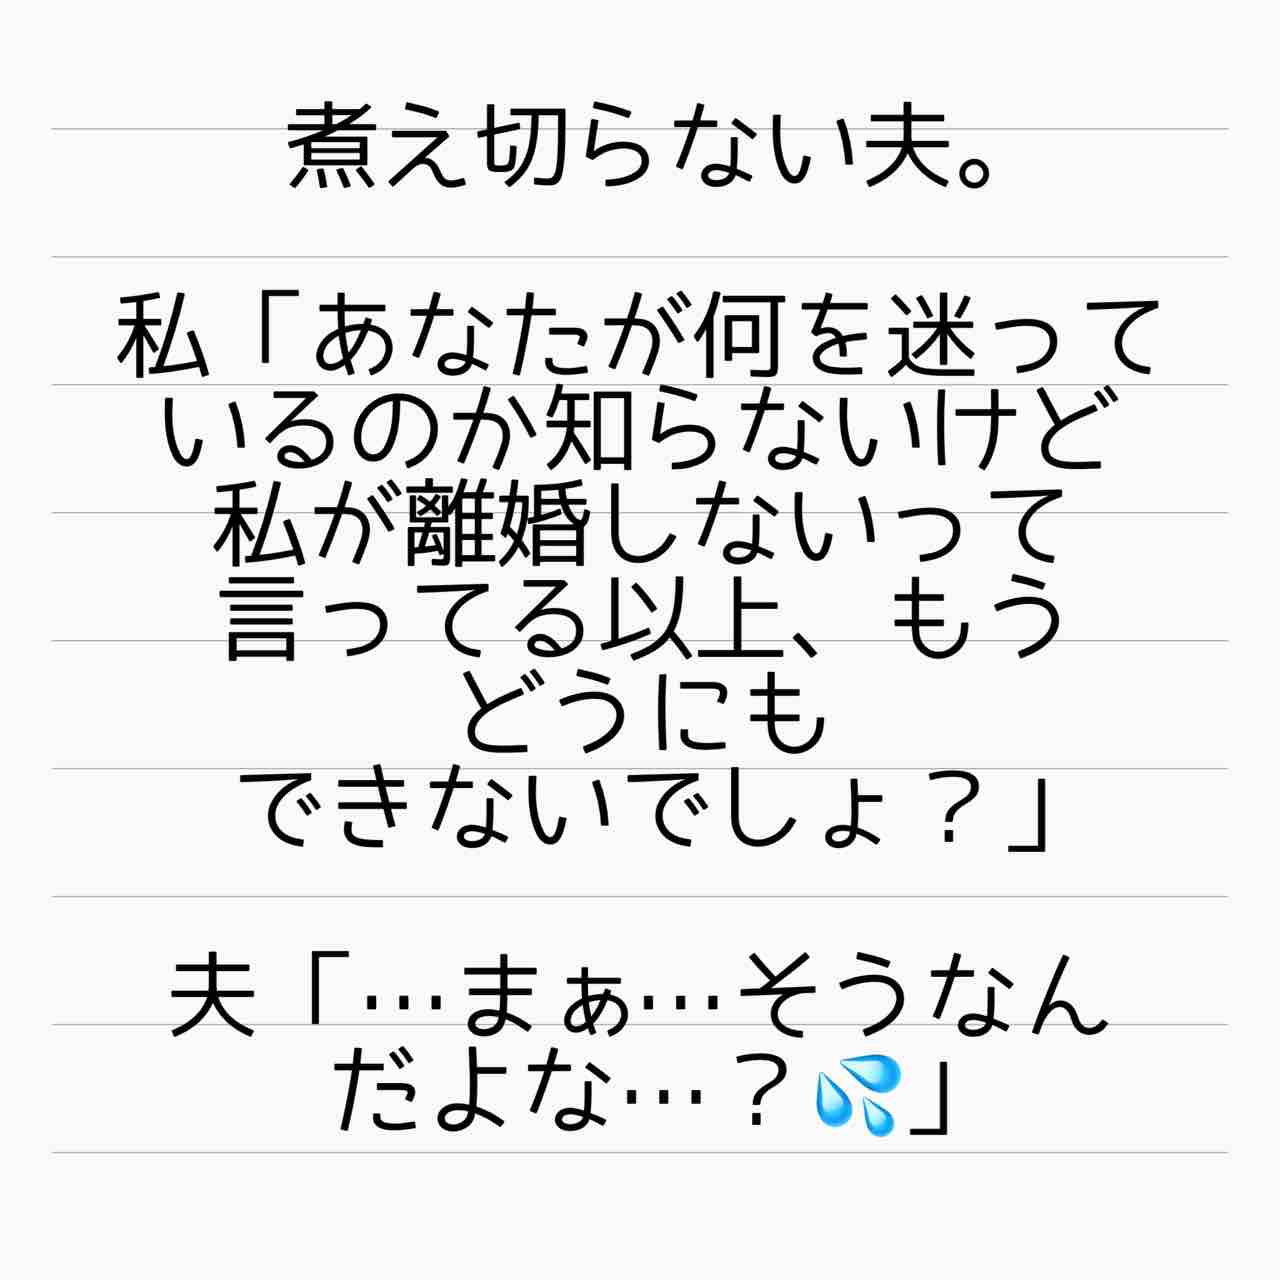 煮え切らない夫。
私「あなたが何を迷って
いるのか知らないけど
私が離婚しないって
言ってる以上、もう
どうにも
できないでしょ？」
夫「…まぁ…そうなん
だよな…？💦」